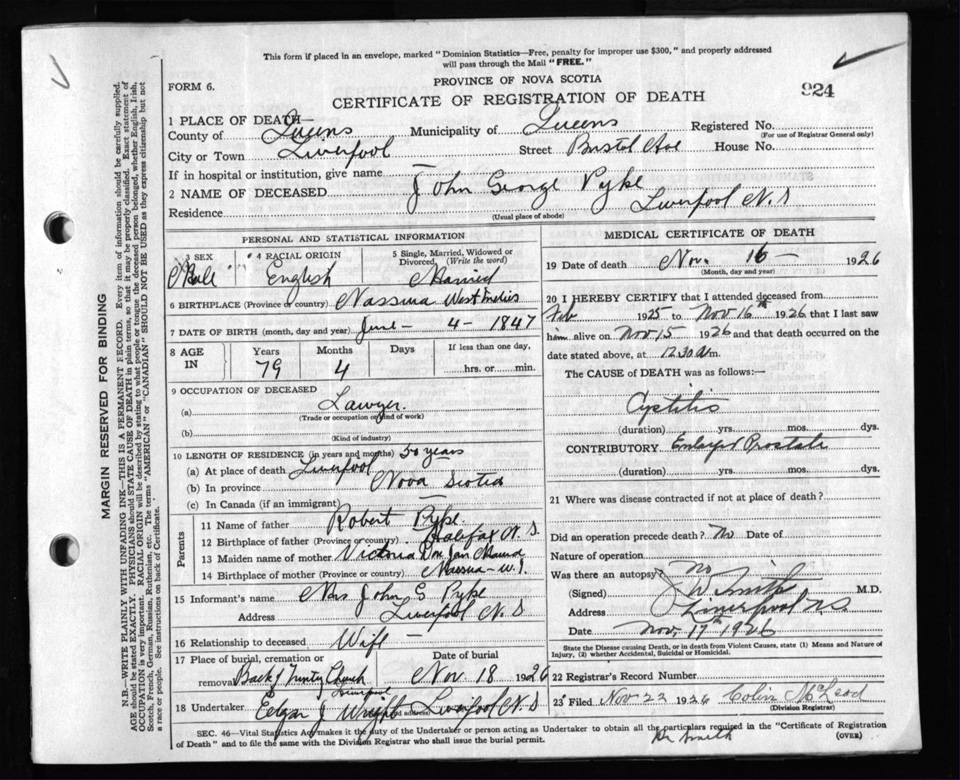 This form if placed in an envelope, marked "Dominion Statistics—Free, penalty for improper use $300," and properly addressed
will pass through the Mail "FREE."
PROVINCE OF NOVA SCOTIA
FORM 6.
924
CERTIFICATE OF REGISTRATION OF DEATH
1 PLACE OF DEATH—
County of Queens Municipality of Queens Registered No.
(For use of Registrar General only)
City or Town Liverpool Street Bristol Ave House No.
If in hospital or institution, give name —
2 NAME OF DECEASED John George Pyke
Residence Liverpool N. S
(Usual place of abode)
PERSONAL AND STATISTICAL INFORMATION
3 SEX Male
4 RACIAL ORIGIN English
5 Single, Married, Widowed or Divorced, (Write the word) Married
6 BIRTHPLACE (Province or country) Nassua West Indies
7 DATE OF BIRTH (month, day and year) June – 4 – 1847
8 AGE IN Years 79 Months 4 Days If less than one day, hrs. or min.
9 OCCUPATION OF DECEASED
(a) Lawyer.
(Trade or occupation or kind of work)
(b)
(Kind of industry)
10 LENGTH OF RESIDENCE (in years and months) 50 years
(a) At place of death Liverpool
(b) In province Nova Scotia
(c) In Canada (if an immigrant) —
Parents
11 Name of father Robert Pyke.
12 Birthplace of father (Province or country) Halifax N. S
13 Maiden name of mother Victoria
14 Birthplace of mother (Province or country) Nassua – W. I.
15 Informant's name Mrs John G Pyke
Address Liverpool N. S
16 Relationship to deceased Wife —
17 Place of burial, cremation or removal Back of Trinty Church Liverpool
Date of burial Nov 18 1926
18 Undertaker Edgar J Wright Liverpool N. S
MEDICAL CERTIFICATE OF DEATH
19 Date of death Nov. 16 – 1926
(Month, day and year)
20 I HEREBY CERTIFY that I attended deceased from
Feb 1925 to Nov 16th 1926 that I last saw
him alive on Nov 15 1926 and that death occurred on the
date stated above, at 12.30 a.m.
The CAUSE of DEATH was as follows:—
Cystitis
(duration) yrs. mos. dys.
CONTRIBUTORY Enlarged Prostate
(duration) yrs. mos. dys.
21 Where was disease contracted if not at place of death?
Did an operation precede death? No Date of
Nature of operation
Was there an autopsy? No
(Signed) J W Smith M.D.
Address Liverpool N.S.
Date Nov. 17th 1926
State the Disease causing Death, or in death from Violent Causes, state (1) Means and Nature of
Injury, (2) whether Accidental, Suicidal or Homicidal.
22 Registrar's Record Number
23 Filed Nov 22 1926 Colin McLeod
(Division Registrar)
SEC. 46—Vital Statistics Act makes it the duty of the Undertaker or person acting as Undertaker to obtain all the particulars required in the "Certificate of Registration
of Death" and to file the same with the Division Registrar who shall issue the burial permit.
Dr Smith
(OVER)
MARGIN RESERVED FOR BINDING
N.B.—WRITE PLAINLY WITH UNFADING INK—THIS IS A PERMANENT RECORD. Every item of information should be carefully supplied.
AGE should be stated EXACTLY. PHYSICIANS should STATE CAUSE OF DEATH in plain terms, so that it may be properly classified. Exact statement of
OCCUPATION is very important. RACIAL ORIGIN will be described by stating to what people or tongue the deceased person belonged, whether English, Irish,
Scotch, French, German, Russian, Ruthenian, etc. The terms "AMERICAN" or "CANADIAN" SHOULD NOT BE USED as they express citizenship but not
a race or people. See instructions on back of Certificate.